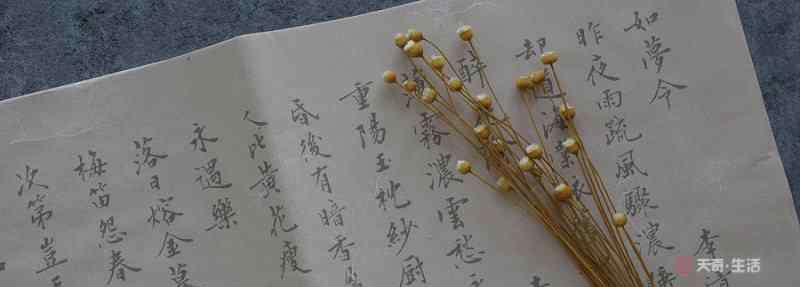 如夢令 李
昨夜雨疏風驟濃
却道海棠依
醉 李
薄霧濃雲愁
重陽玉枕紗廚
昏後有暗香
人比黄花瘦
永遇樂
落日熔金暮
梅笛怨春
次第豈
天奇·生活